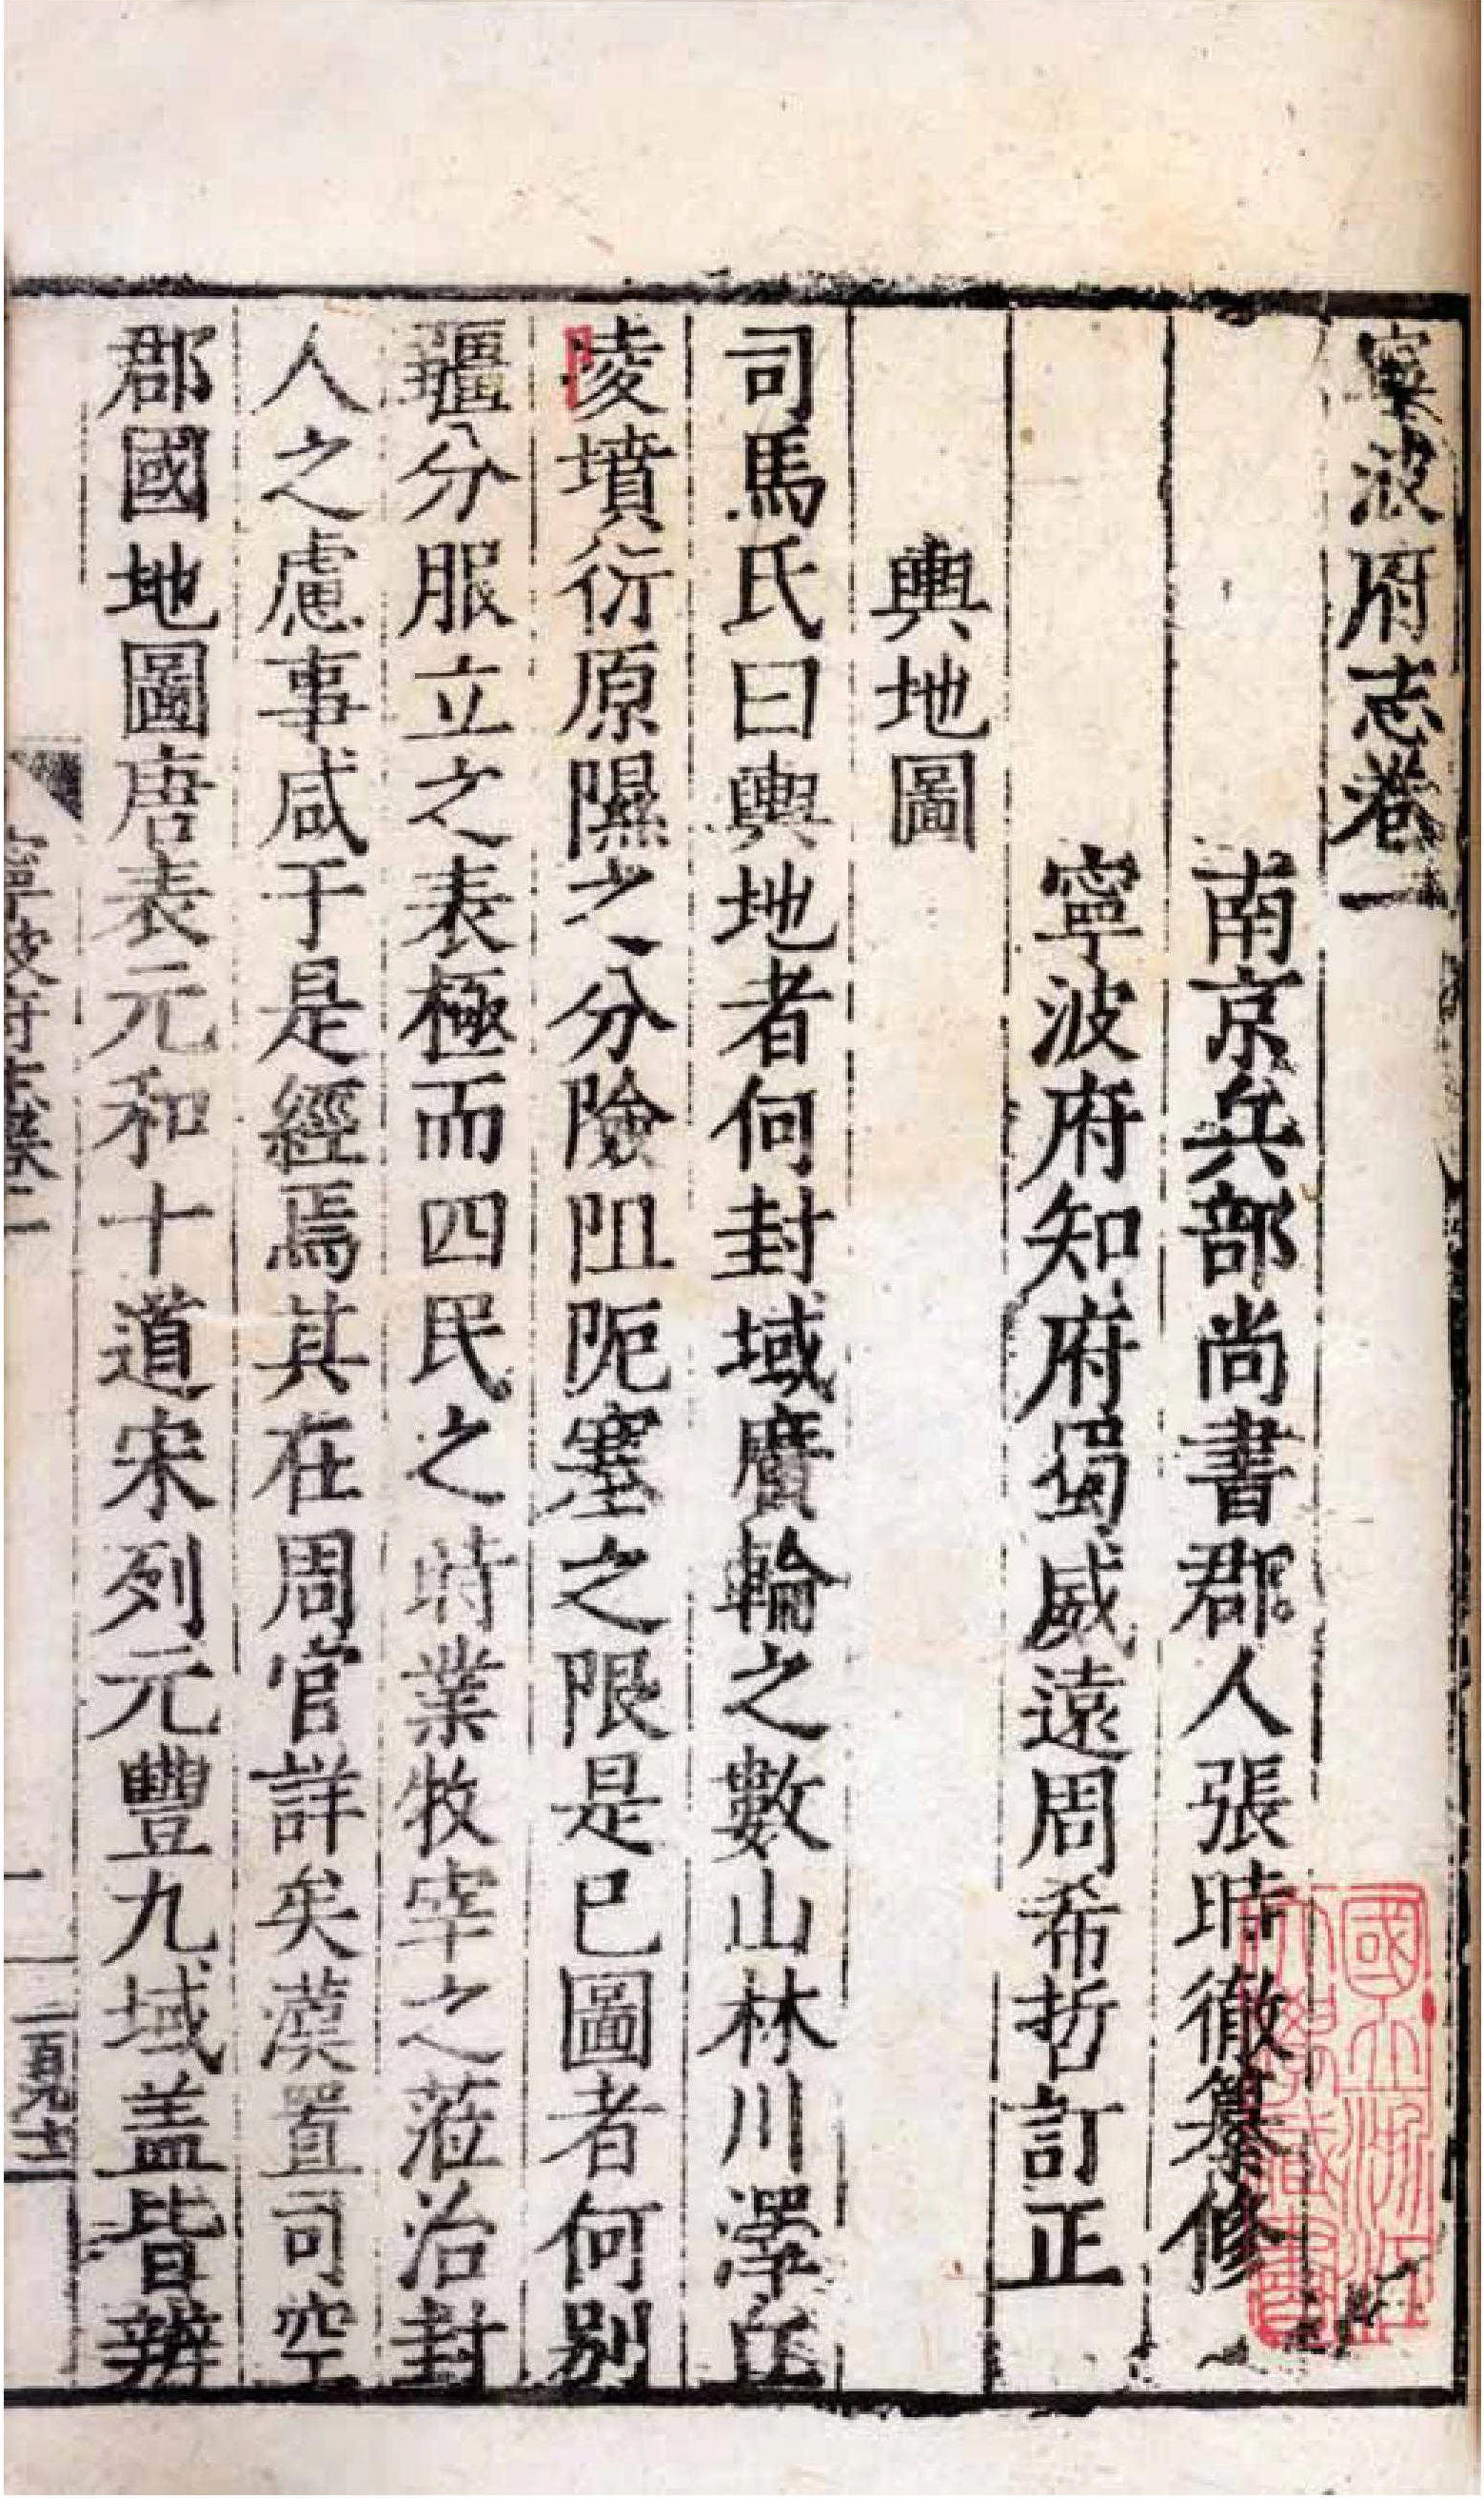 寧波府志卷一
南京兵部尚書郡人張時徹纂修
寧波府知府蜀威遠周希哲訂正
輿地圖
司馬氏曰輿地者何封域廣輪之數山林川澤丘
陵墳衍原隰之分險阻阨塞之限是已圖者何別
疆分服立之表極而四民之時業牧宰之蒞治封
人之慮事咸于是經焉其在周官詳矣漢置司空
郡國地圖唐表元和十道宋列元豐九域盖皆辨
寧波府志卷一
一
國立浙江大學藏書